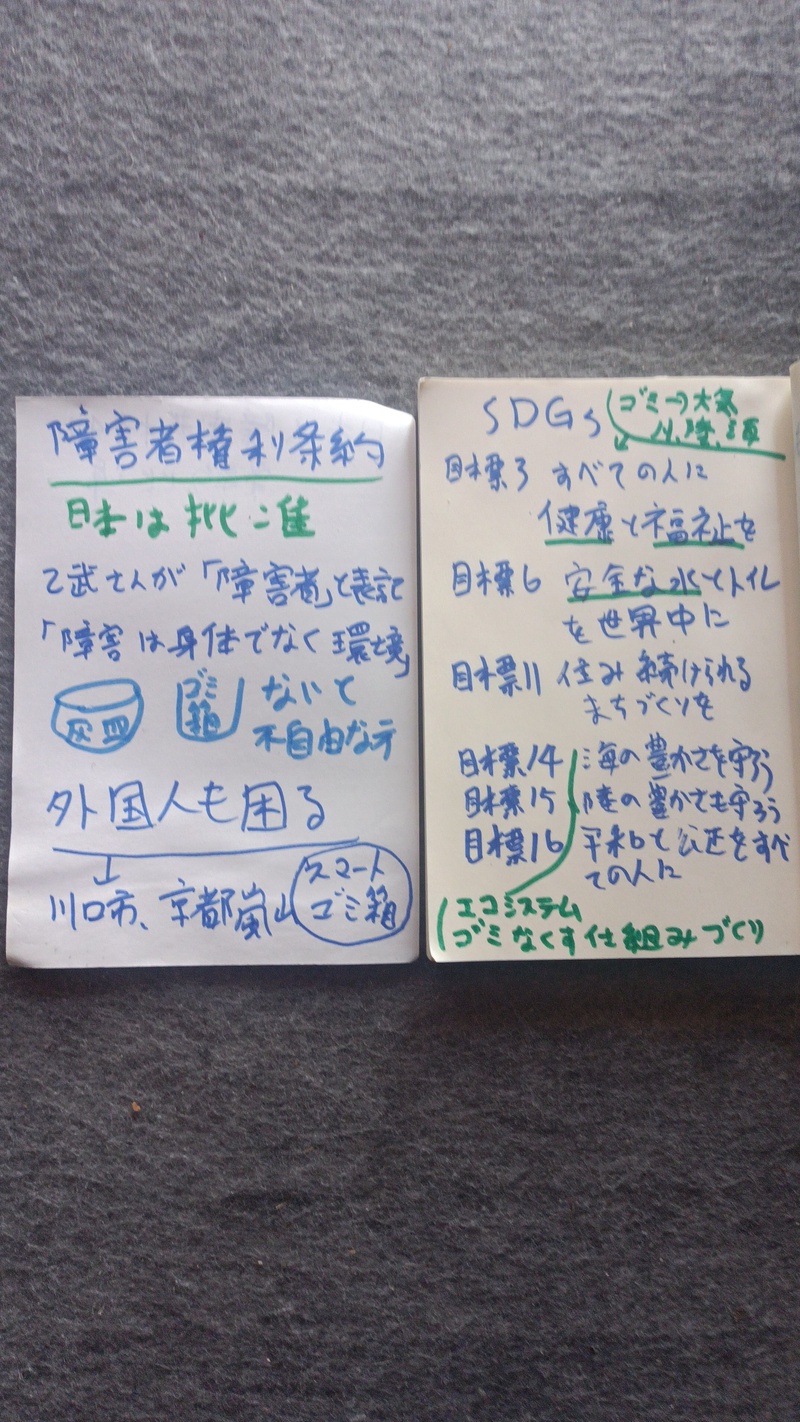 障害者権利条約
日本は批准
乙武さんが「障害者」と表記
「障害は身体でなく環境」
灰皿
ゴミ箱
ないと
不自由な子
外国人も困る
川口市、京都嵐山
スマート
ゴミ箱
SDGs
ゴミ→大気
川、陸、海
目標3 すべての人に
健康と福祉を
目標6 安全な水とトイレ
を世界中に
目標11 住み続けられる
まちづくりを
目標14 海の豊かさを守ろう
目標15 陸の豊かさも守ろう
目標16 平和と公正をすべ
ての人に
エコシステム
ゴミなくす仕組みづくり